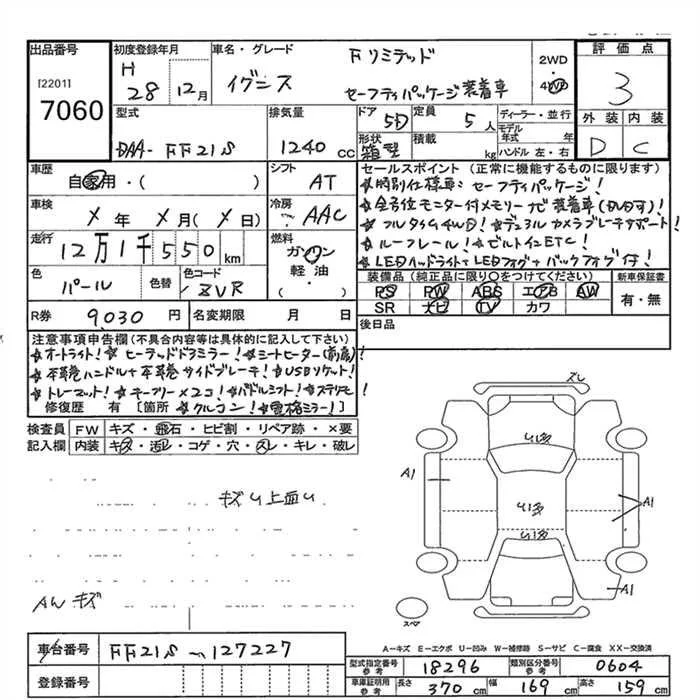 出品番号
[2201]
7060
初度登録年月
H
28 12月
車名・グレード
Fリミテッド
イグニス
セーフティパッケージ装着車
2WD
4WD
評価点
3
外装 内装
D C
型式
DAA- FF21S
排気量
1240 cc
ドア 5D
定員 5 人
形状 箱型
積載 kg
ディーラー・並行
モデル年式 年
ハンドル 左・右
車歴
自家用・( )
シフト
AT
車検
X 年 X 月( X 日)
冷房
AAC
走行
12万1千550km
燃料
ガソリン
軽油・
( )
色
パール
色替
色コード
ZVR
R券
9,030 円
名変期限 月 日
セールスポイント(正常に機能するものに限ります)
★特別仕様車:セーフティパッケージ!
★全方位モニター付メモリーナビ装着車(DVD可)!
★フルタイム4WD!★デュアルカメラブレーキサポート!
★ルーフレール!★ビルトインETC!
★LEDヘッドライト+LEDフォグ+バックフォグ付!
装備品(純正品に限り○をつけてください)
PS PW ABS エアB AW
SR ナビ TV カワ
新車保証書
有・無
後日品
注意事項申告欄(不具合内容等は具体的に記入して下さい)
★オートライト!★ヒーテッドドアミラー!★シートヒーター(前席)!
★本革巻ハンドル+本革巻サイドブレーキ!★USBソケット!
★トレーマット!★キーフリー×2コ!★パドルシフト!★ステリモ!
修復歴 有 [箇所 ★クルコン!★電格ミラー!]
検査員
記入欄
FW キズ・飛石・ヒビ割・リペア跡・×要
内装 キズ・汚レ・コゲ・穴・スレ・キレ・破レ
キズU上面U
AWキズ
ズレ
U1多
A1
U1多
A1
U1多
A1
スペア
A−キズ E−エクボ U−凹み W−補修跡 S−サビ C−腐食 XX−交換済
車台番号
FF21S-127227
登録番号
型式指定番号
参考
18296
類別区分番号
参考
0604
車庫証明用
参考
長さ 370 cm
幅 169 cm
高さ 159 cm